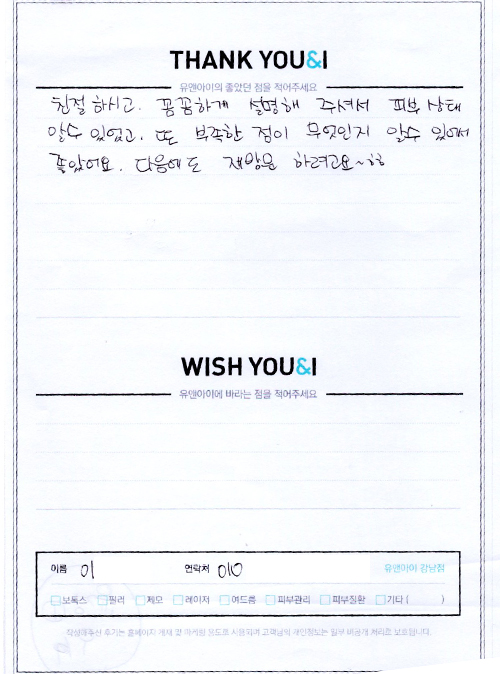 THANK YOU&I
유앤아이의 좋았던 점을 적어주세요
친절하시고. 꼼꼼하게 설명해 주셔서 피부상태
알수 있었고. 또 부족한 점이 무엇인지 알수 있어서
좋았어요. 다음에도 재방문 하려고요~ㅎㅎ
WISH YOU&I
유앤아이에 바라는 점을 적어주세요
이름 이 연락처 010 유앤아이 강남점
보톡스 필러 제모 레이저 여드름 피부관리 피부질환 기타 ( )
작성해주신 후기는 홈페이지 게재 및 마케팅 용도로 사용되며 고객님의 개인정보는 일부 비공개 처리로 보호됩니다.